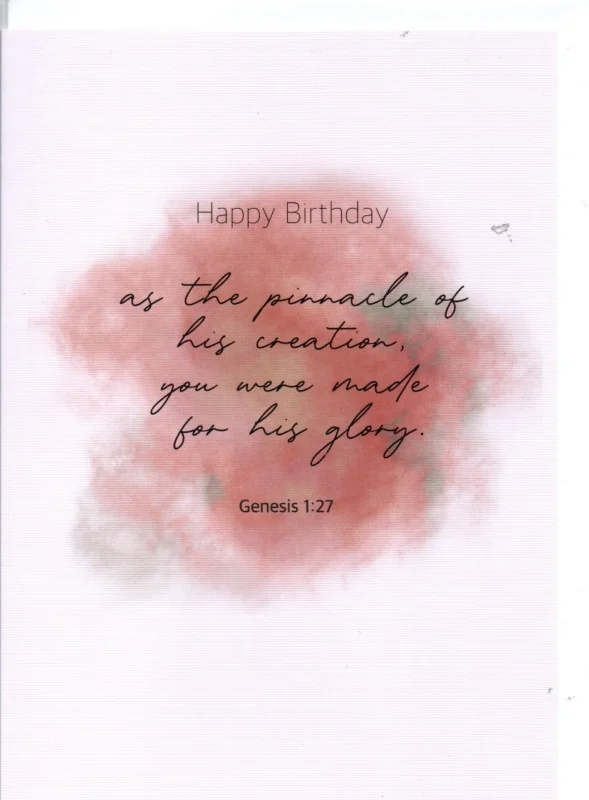 Happy Birthday
as the pinnacle of
his creation,
you were made
for his glory.
Genesis 1:27